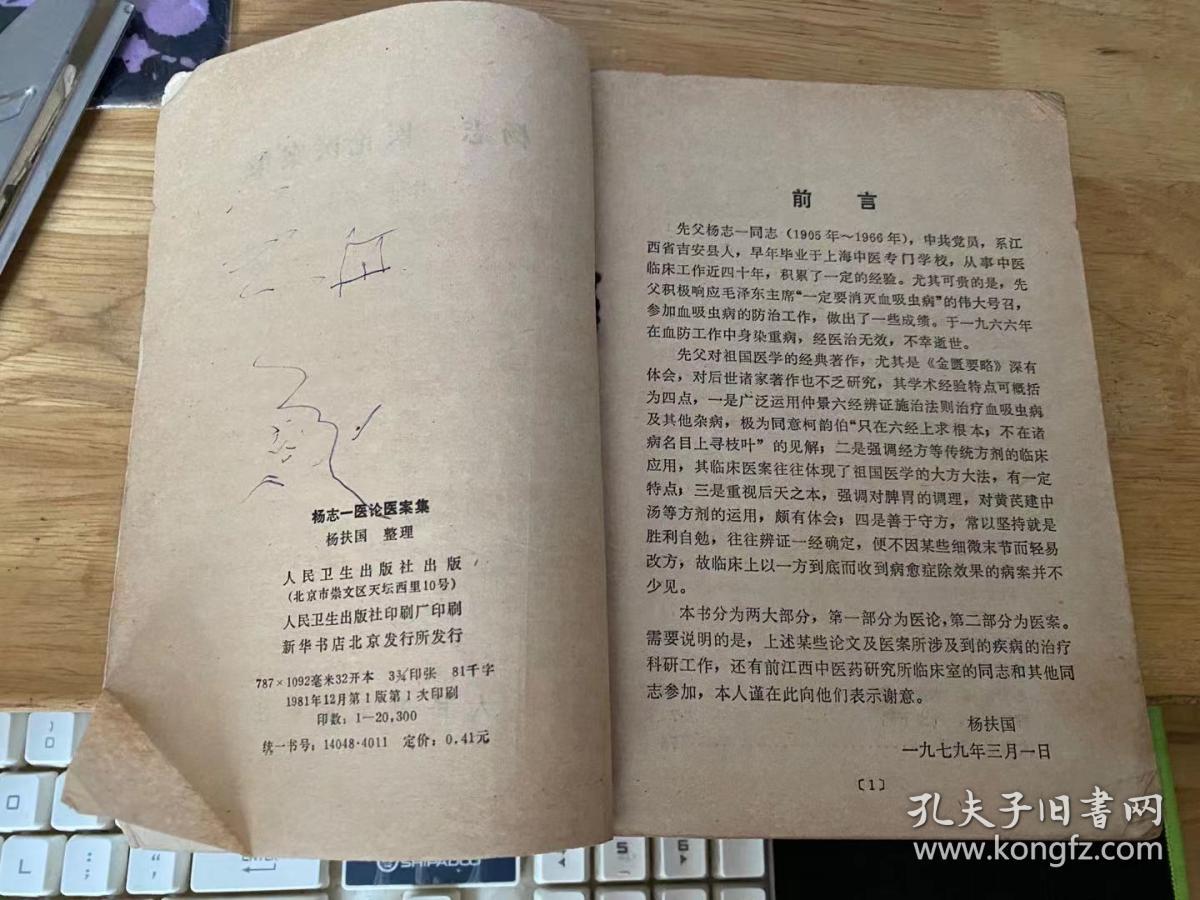 杨志一医论医案集
杨扶国 整理
人民卫生出版社出版
(北京市崇文区天坛西里10号)
人民卫生出版社印刷厂印刷
新华书店北京发行所发行
787×1092毫米32开本 3¾印张 81千字
1981年12月第1版第1次印刷
印数：1—20,300
统一书号：14048·4011 定价：0.41元
前言
先父杨志一同志（1905年～1966年），中共党员，系江
西省吉安县人，早年毕业于上海中医专门学校，从事中医
临床工作近四十年，积累了一定的经验。尤其可贵的是，先
父积极响应毛泽东主席“一定要消灭血吸虫病”的伟大号召，
参加血吸虫病的防治工作，做出了一些成绩。于一九六六年
在血防工作中身染重病，经医治无效，不幸逝世。
先父对祖国医学的经典著作，尤其是《金匮要略》深有
体会，对后世诸家著作也不乏研究，其学术经验特点可概括
为四点，一是广泛运用仲景六经辨证施治法则治疗血吸虫病
及其他杂病，极为同意柯韵伯“只在六经上求根本，不在诸
病名目上寻枝叶”的见解；二是强调经方等传统方剂的临床
应用，其临床医案往往体现了祖国医学的大方大法，有一定
特点；三是重视后天之本，强调对脾胃的调理，对黄芪建中
汤等方剂的运用，颇有体会；四是善于守方，常以坚持就是
胜利自勉，往往辨证一经确定，便不因某些细微末节而轻易
改方，故临床上以一方到底而收到病愈症除效果的病案并不
少见。
本书分为两大部分，第一部分为医论，第二部分为医案。
需要说明的是，上述某些论文及医案所涉及到的疾病的治疗
科研工作，还有前江西中医药研究所临床室的同志和其他同
志参加，本人谨在此向他们表示谢意。
杨扶国
一九七九年三月一日
〔1〕
孔夫子旧书网
www.kongfz.com
ENTER
SHIPADOO
4
5
6
O
L